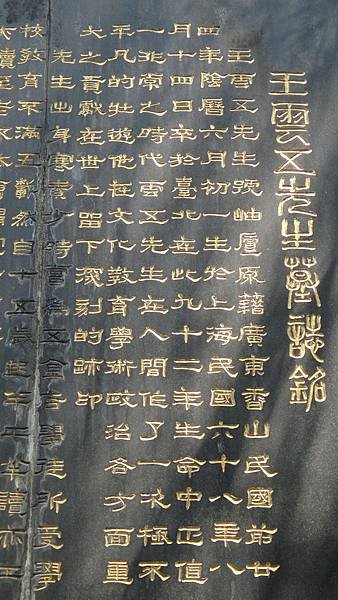 王雲五先生墓誌銘
王雲五先生號岫廬原籍廣東香山民國前廿
四年陰曆六月初一生於上海民國六十八年八
月十四日卒於臺北在此九十二年生命中正值
一非常之時代雲五先生在人間作了一次極不
平凡的壯遊他在文化教育學術政治各方面重
大之貢獻在世上留下深刻的跡印
先生出身寒素少時曾為五金店學徒所受學
校教育不滿五載然自十五歲